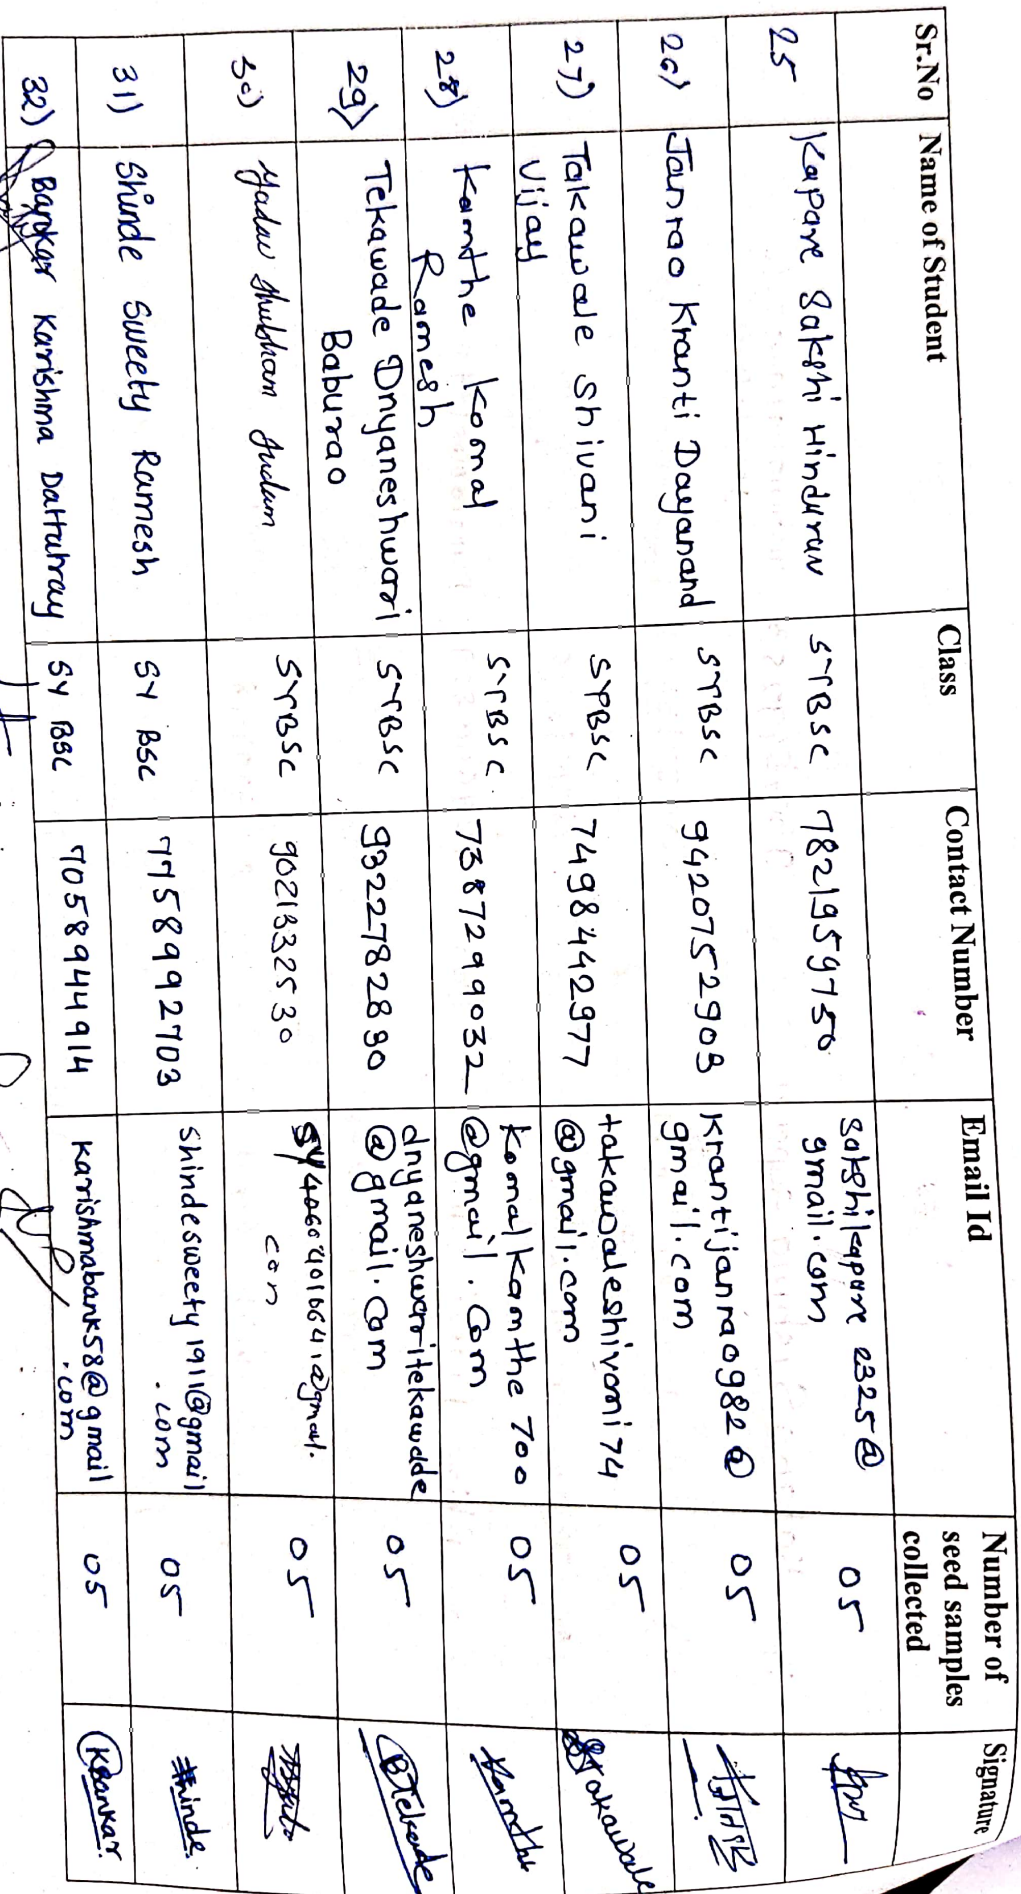 Sr.No Name of Student Class Contact Number Email Id Number of seed samples collected Signature
25 Kapare Sakshi Hindurav SYBSC 7821959750 sakshikapare2325@
gmail.com 05
26) Janrao Kranti Dayanand SYBSC 9420752903 Krantijanrao982@
gmail.com 05
27) Takawale Shivani SYBSC 7498442977 takawaleshivani74 05 Stakawale
Vijay @gmail.com
28) Kamthe Komal SYBSC. 7387299032 Komalkamthe700 05 Kamthe
Ramesh @gmail.com
29) Tekawade Dnyaneshwari SYBSC 9322782890 dnyaneshwaritekawade 05
Baburao @gmail.com
30) Yadav Shubham SYBSC 9021332530 05
con
31) Shinde Sweety Ramesh SY BSC 7758992703 shindesweety1911@gmail 05 Shinde.
.com
32) Bankar Karishma Dattatray SY BSC 7058944914 karishmabank58@gmail 05 KBankar.
.com